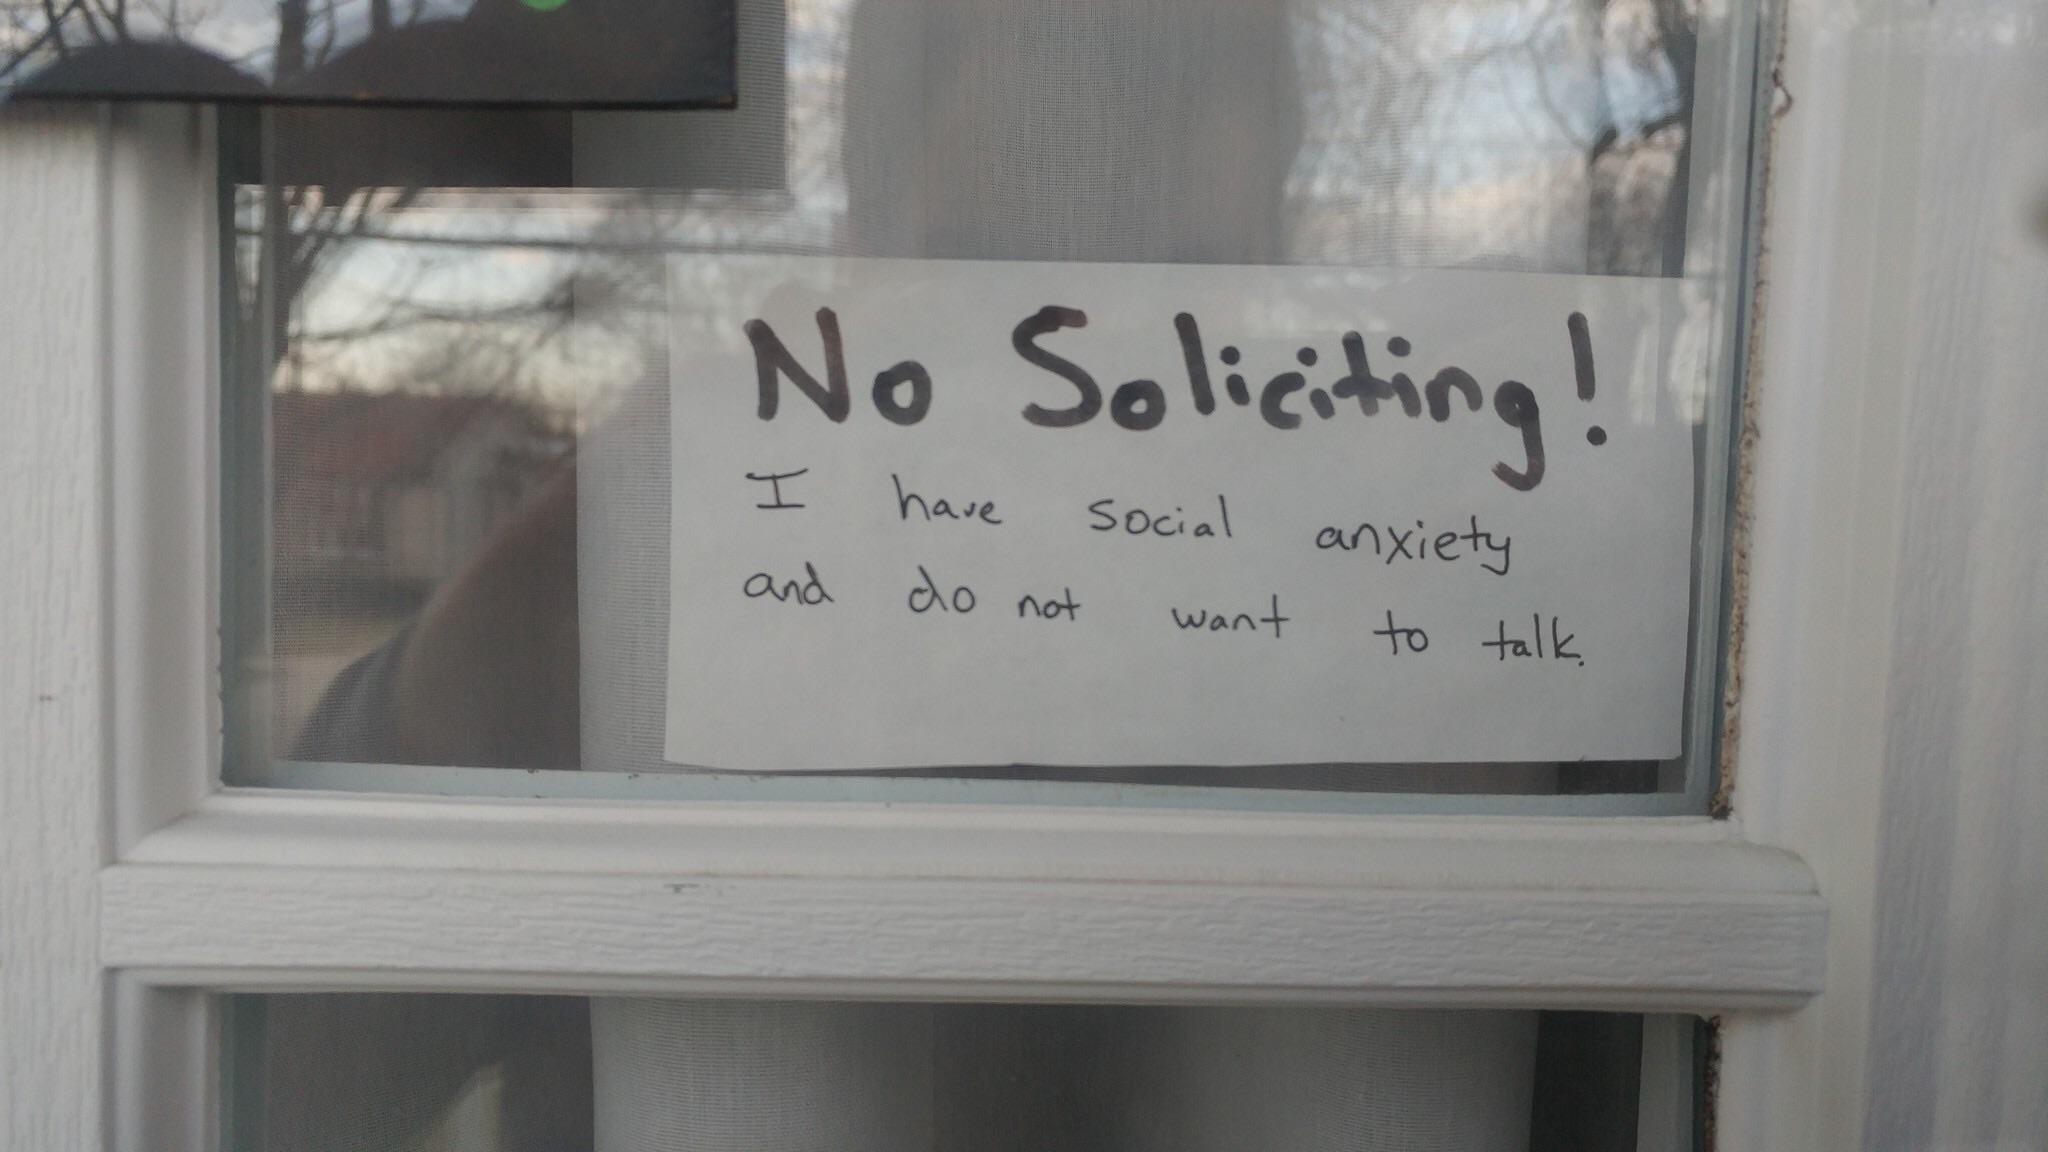 No Soliciting!
I have social anxiety
and do not want to talk.